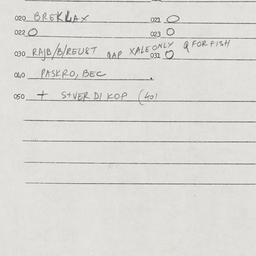 020 BREKLAX 021 O
022 O 023 O
030 RAJB/B/REUST GAP XALE ONLY Q FOR FISH 031 O
040 PASKRO, BEC
050 + S+VER DI KOP (40)